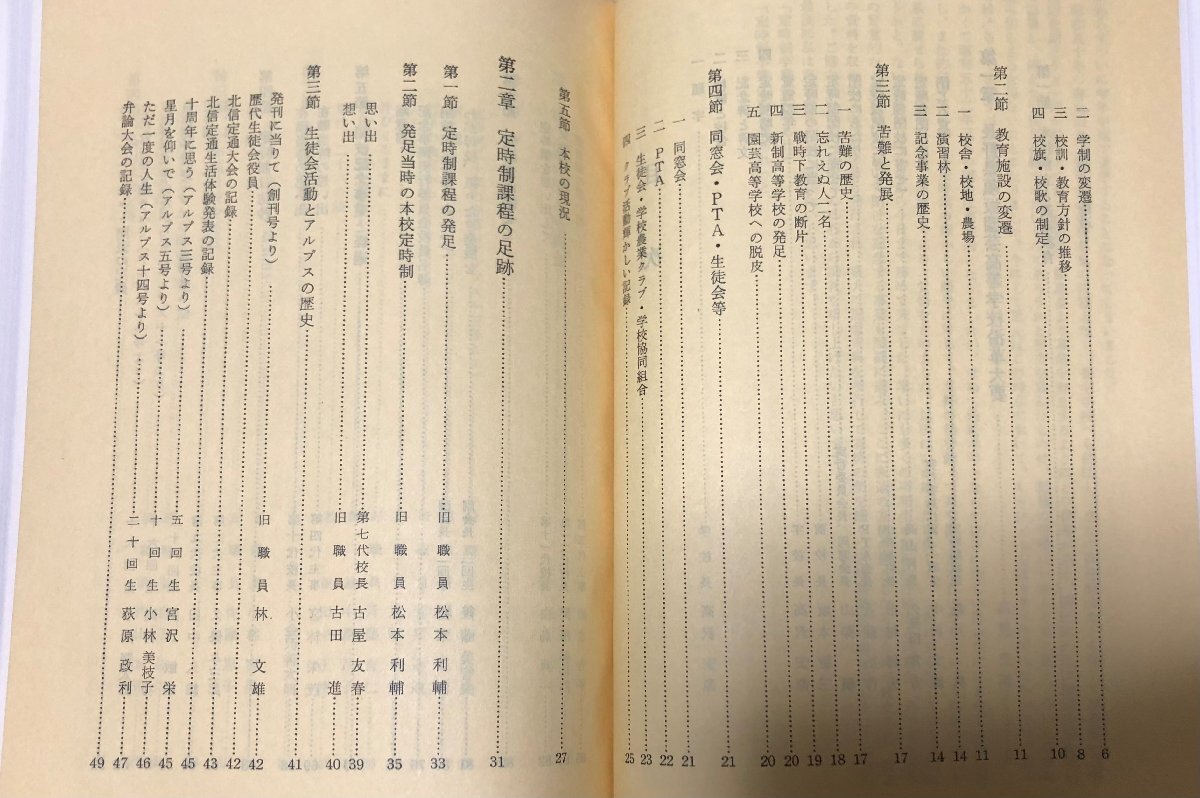 二　学制の変遷……6
三　校訓・教育方針の推移……8
四　校旗・校歌の制定……10
第二節　教育施設の変遷……11
一　校舎・校地・農場……11
二　演習林……14
三　記念事業の歴史……14
第三節　苦難と発展……17
一　苦難の歴史……17
二　忘れえぬ人二名……18
三　戦時下教育の断片……19
四　新制高等学校の発足……20
五　園芸高等学校への脱皮……20
第四節　同窓会・PTA・生徒会等……21
一　同窓会……21
二　PTA……22
三　生徒会・学校農業クラブ・学校協同組合……23
四　クラブ活動輝かしい記録……25
第五節　本校の現況……27
第二章　定時制課程の足跡……31
第一節　定時制課程の発足……旧職員　松本利輔……33
第二節　発足当時の本校定時制……旧職員　松本利輔……35
思い出……第七代校長　古屋友春……39
想い出……旧職員　古田　進……40
第三節　生徒会活動とアルプスの歴史……41
発刊に当りて（創刊号より）……旧職員　林　文雄……42
歴代生徒会役員……42
北信定通大会の記録……43
北信定通生活体験発表の記録……45
十周年に思う（アルプス三号より）……五回生　宮沢　栄……45
星月を仰いで（アルプス五号より）……十回生　小林美枝子……46
ただ一度の人生（アルプス十四号より）……二十回生　荻原改利……47
弁論大会の記録……49